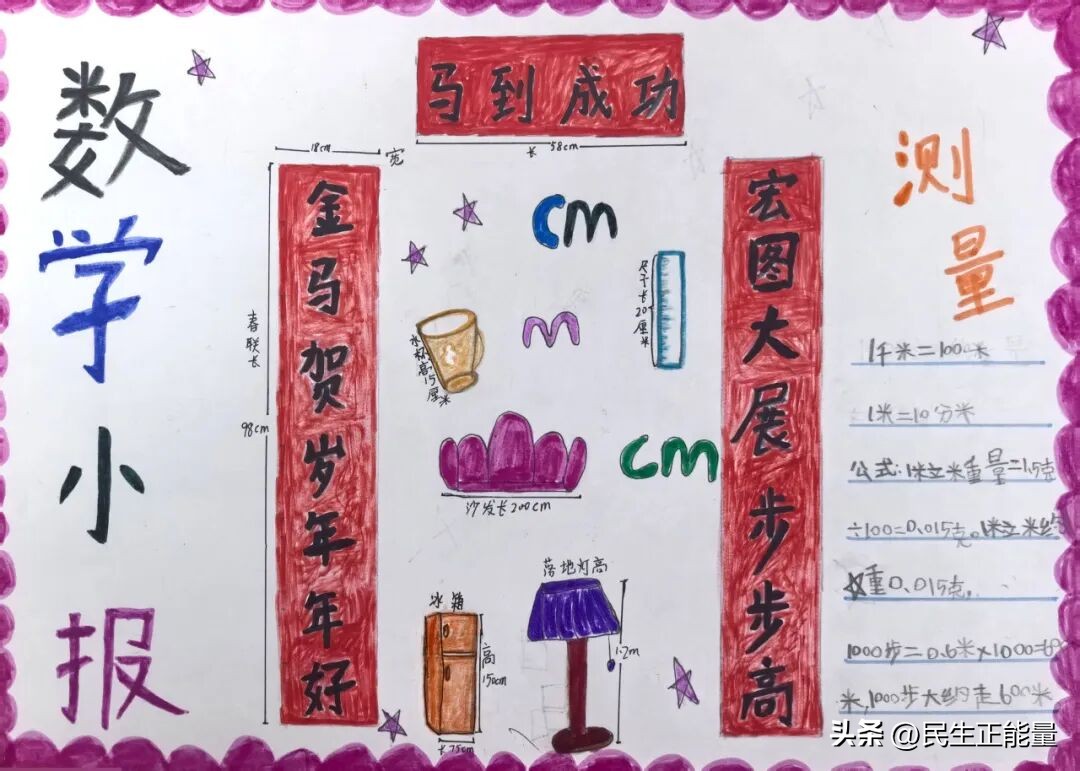 数学小报
马到成功
长 58cm
18cm 宽
金马贺岁年年好
春联长
98cm
宏图大展步步高
cm
m
cm
尺子长20厘米
水杯高15厘米
沙发长200cm
冰箱
高
150cm
长75cm
落地灯高
1.2m
测量
1千米=1000米
1米=10分米
公式:1粒米重量=1.5克
÷100=0.015克。1粒米约
重0.015克。
1000步=0.6米×1000=600
米,1000步大约走600米
头条 @民生正能量